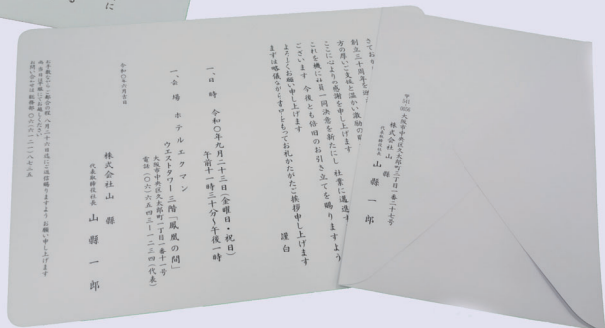 さており
創立三十周年を迎
方の厚いご支援と温かい激励の賜
ここに心よりの感謝を申し上げます
これを機に社員一同決意を新たにし 社業に邁進す
ございます 今後とも倍旧のお引き立てを賜りますよう
よろしくお願い申し上げます
まずは略儀ながら書中をもってお礼かたがたご挨拶申し上げます
謹白
一、日 時 令和〇年九月二十三日(金曜日・祝日)
午前十一時三十分〜午後一時
一、会 場 ホテルエクマン
ウエストタワー三階「鳳凰の間」
大阪市中央区久太郎町一丁目一番十一号
電話(〇六)六五四三ー一二三四(代表)
令和〇年六月吉日
株式会社山縣
代表取締役社長 山縣一郎
お手数ながらご都合の程 八月二十六日迄にご返信賜りますようお願い申し上げます
大阪市中央区久太郎町三丁目一番二十七号
株式会社山縣
代表取締役社長 山縣一郎
に